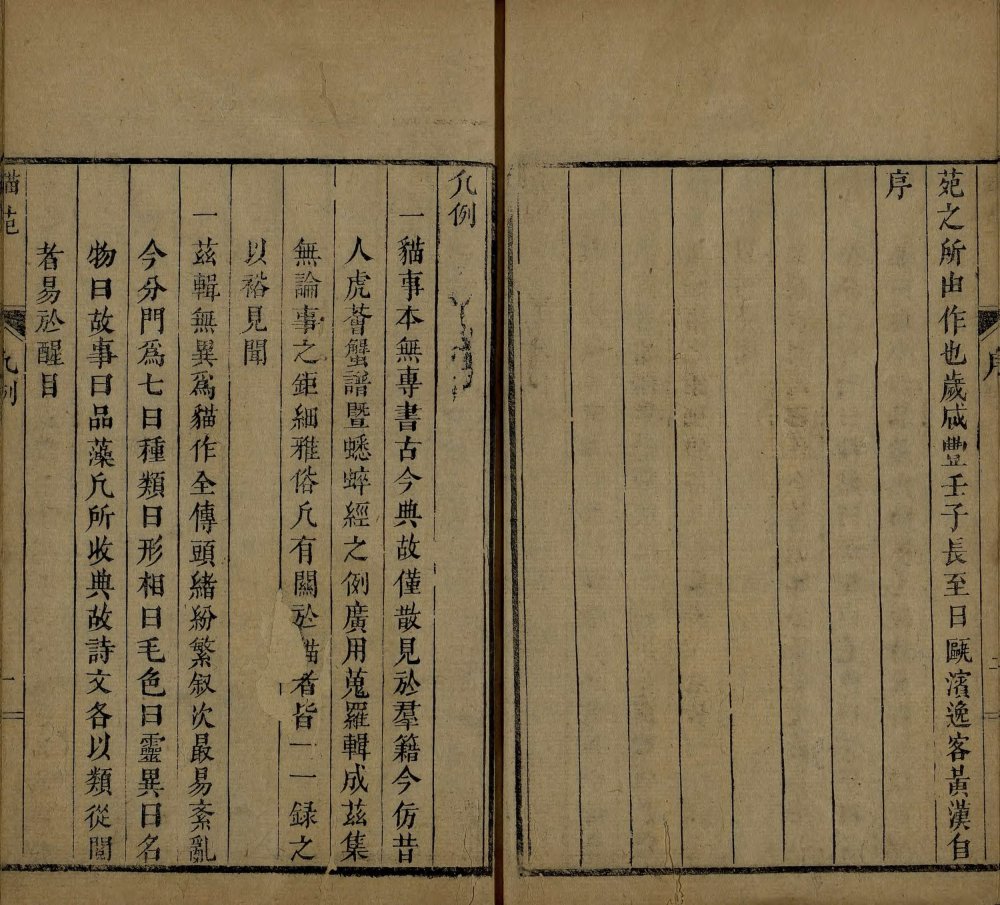 苑之所由作也歲咸豐壬子長至日甌濱逸客黃漢自
序
序
二
凡例
一貓事本無專書古今典故僅散見於羣籍今仿昔
人虎薈蟹譜曁蟋蟀經之例廣用蒐羅輯成茲集
無論事之鉅細雅俗凡有關於貓者皆一一録之
以裕見聞
一茲輯無異爲貓作全傳頭緒紛繁叙次最易紊亂
今分門爲七曰種類曰形相曰毛色曰靈異曰名
物曰故事曰品藻凡所收典故詩文各以類從閱
者易於醒目
貓苑
凡例
一